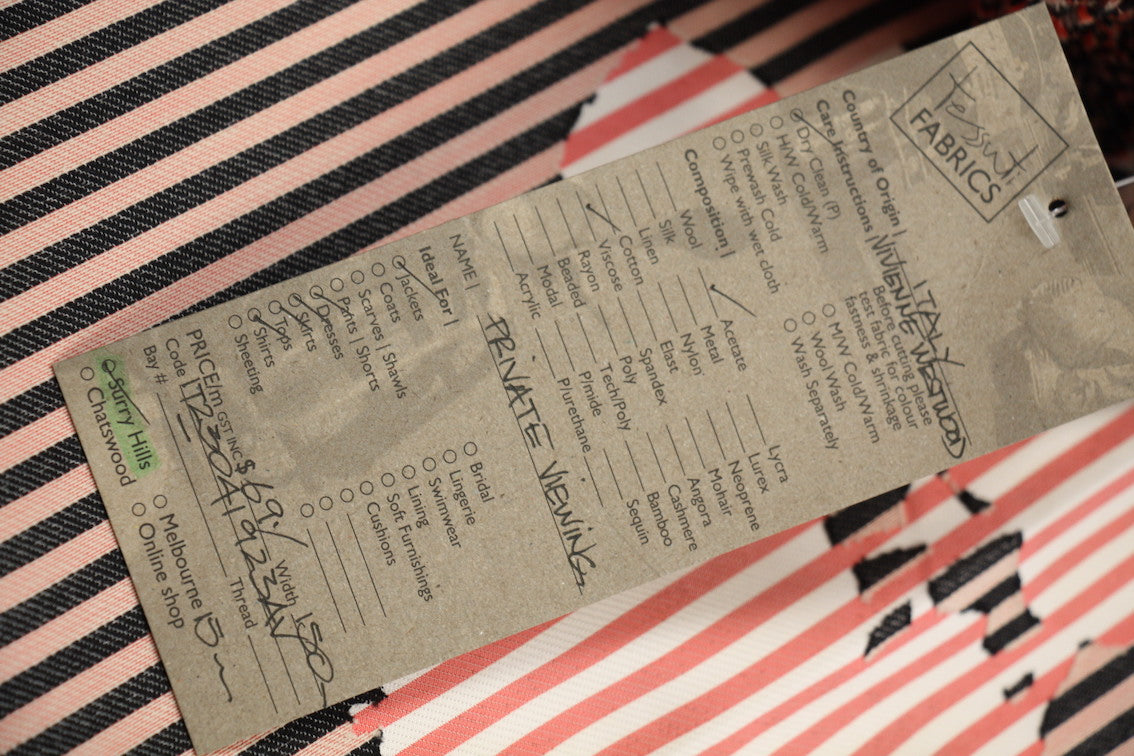 Tessuti
FABRICS
Country of Origin | ITALY
VIVIENNE WESTWOOD
Care Instructions | Before cutting please
test fabric for colour
fastness & shrinkage
Dry Clean (P)
H/W Cold/Warm
Silk Wash
Prewash Cold
Wipe with wet cloth
M/W Cold/Warm
Wool Wash
Wash Separately
Composition |
Wool
Silk
Linen
Cotton
Viscose
Rayon
Beaded
Modal
Acrylic
Acetate
Metal
Nylon
Elast
Spandex
Poly
Tech/Poly
P/mide
P/urethane
Lycra
Lurex
Neoprene
Mohair
Angora
Cashmere
Bamboo
Sequin
NAME | PRIVATE VIEWING
Ideal For |
Jackets
Coats
Scarves | Shawls
Pants | Shorts
Dresses
Skirts
Tops
Shirts
Sheeting
Bridal
Lingerie
Swimwear
Lining
Soft Furnishings
Cushions
PRICE/m GST INC $ 69./ Width 150
Code
Thread
Bay #
Surry Hills
Chatswood
Melbourne
Online shop